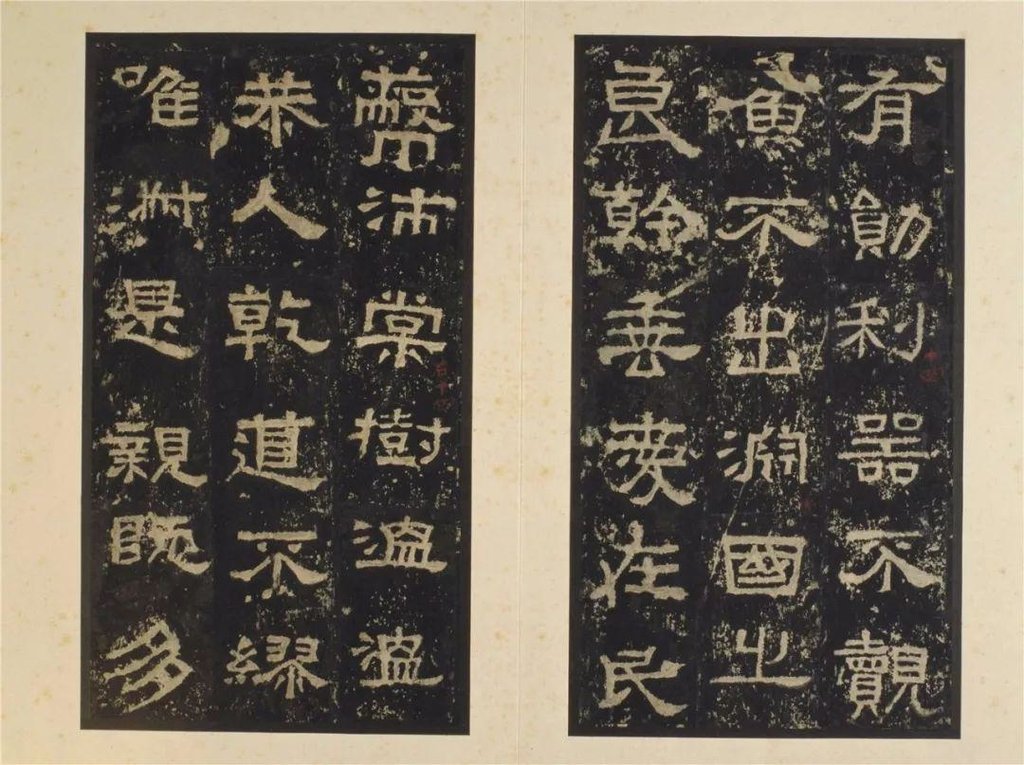 有勛利器不覿
魚不出淵國之
良幹垂愛在民
蔽沛棠樹溫溫
恭人乾道不繆
唯淑是親既多